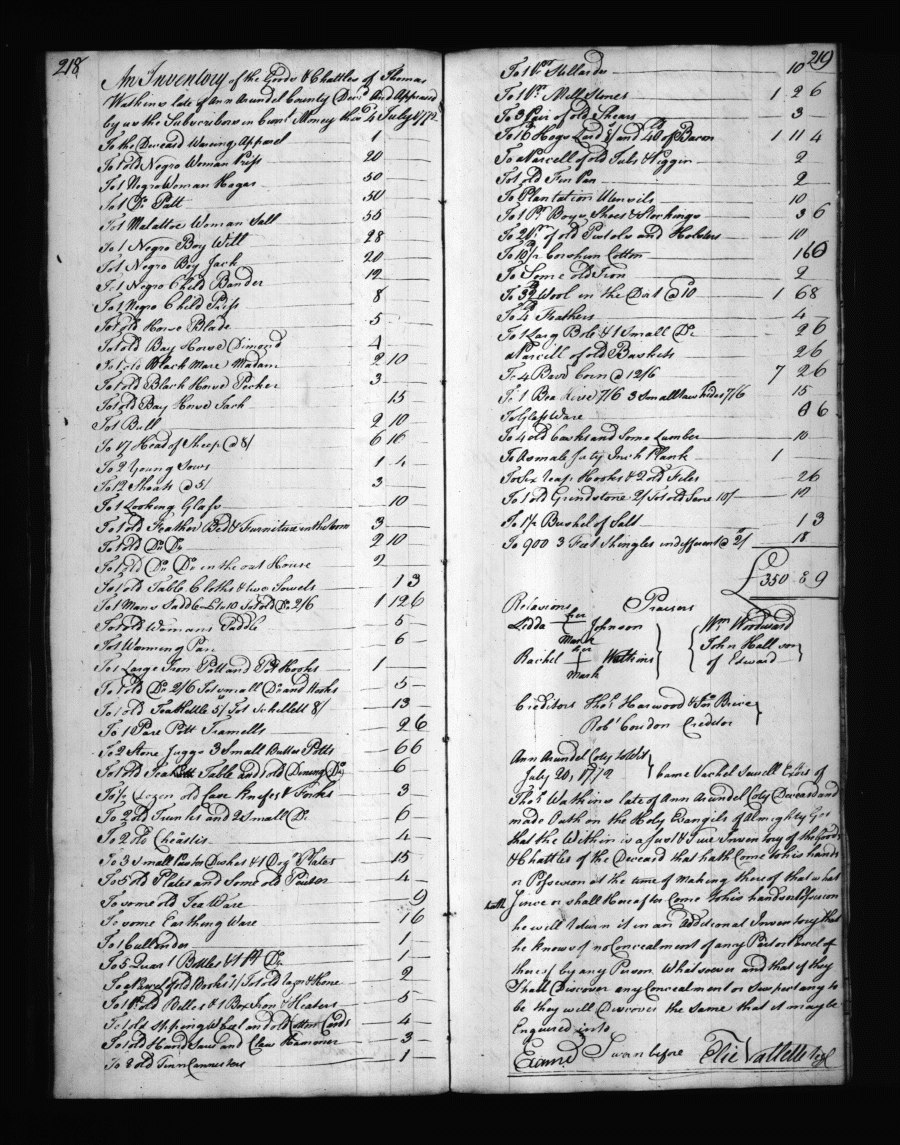 218
An Inventory of the Goods & Chattles of Thomas
Watkins late of Ann Arundel County Decd. And Appraised
by us the Subscribers in Curt. Money this 4 July 1772
To the Deceasd Waring Apparel 1
To 1 old Negro Woman Priss 20
To 1 Negro Woman Hagar 50
To 1 Do. Patt 50
To 1 Malattoe Woman Sall 55
To 1 Negro Boy Will 28
To 1 Negro Boy Jack 20
To 1 Negro Child Bander 12
To 1 Negro Child Priss 8
To 1 old Horse Blade 5
To 1 old Bay Horse Dimond 4
To 1 old Black Mare Madam 2 10
To 1 old Black Horse Pecker 3
To 1 old Bay Horse Jack 15
To 1 Bull 2 10
To 17 Head of Sheep @ 8/ 6 16
To 2 Young Sows 1 4
To 12 Shoats @ 5/ 3
To 1 Looking Glass 10
To 1 old Feather Bed & Furniture in the Room 3
To 1 old Do. Do. 2 10
To 1 old Do. Do. in the out House 2
To 1 old Table Cloths & two Towels 1 3
To 1 Mans Saddle 1 10 To 1 old Do. 2/6 1 12 6
To 1 old Womans Saddle 5
To 1 Warming Pan 6
To 1 Large Iron Pott and Pott Hooks 1
To 1 old Do. 2/6 To 1 small Do. and Hooks 5
To 1 old Tea Kettle 5/ To 1 Skellett 8/ 13
To 1 Pare Pott Tramells 2 6
To 2 Stone Juggs 3 Small Butter Potts 6 6
To 1 old Tea Table and old Dining Do. 6
To ½ Dozen old Case Knifes & Forks 3
To 2 old Trunks and 2 Small Do. 6
To 2 old Cheasts 4
To 3 Small Pewter Dishes & 1 Dozn. Plates 15
To 5 old Plates and Some old Pewter 4
To some old Tea Ware 9
To some Earthing Ware 1 6
To 1 Cullender 1
To 5 Quart Bottles & 1 Pt. Do. 1
To a Parcel of old Books 1/ To 1 old Razor & Hone 2
To 1 Pr. old Bellos & 1 Box Iron & Heaters 5
To 1 old Spining Wheel and old Cotton Cards 4
To 1 old Hand Saw and Claw Hammer 3
To 2 old Tinn Cannesters 1
219
To 1 Pr. Stillards 10
To 1 Pr. Mill Stones 1 2 6
To 3 Pair of old Shears 3
To 16 Hogs Lard & and 40 lb of Bacon 1 11 4
To a Parcell of old Tubs & Piggin 2
To 1 old Tin Pan 2
To Plantation Utensils 10
To 1 Pr. Boys Shoes & Stockings 3 6
To 2 Pr. of old Pistols and Holsters 10
To 10½ Cotton 16 0
To Some old Iron 2
To 32 Wool in the Dirt @ 10 1 6 8
To 4 Feathers 4
To 1 Larg Bole & 1 Small Do. 2 6
a Parcill of old Baskets 2 6
To Barls. Corn @ 12/6 7 2 6
To 1 Bea Hive 7/6 3 Small raw hides 7/6 15
To Glass Ware 6
To 4 old Casks and Some Lumber 10
To Inch Plank 1
To Six Reap Hooks & 2 old Files 2 6
To 1 old Grindstone 2/ To 1 old 10/ 12
To 1½ Bushel of Salt 1 3
To 900 3 Feet Shingles indifferent @ 2/ 18
£ 350 8 9
Relasions Praisers
Lidda her mark Johnson Wm. Woodward
Rachel her mark Watkins John Hall son of Edward
Creditors Thos. Harwood & Jos. Brice
Robt. Couden Creditor
Ann Arundel Coty towit
July 20, 1772 Came Vachel Sewell Exr. of
Thos. Watkins late of Ann Arundel Coty Deceased and
made Oath on the Holy Evangils of Almighty God
that the Within is a Just & True Inventory of the Goods
& Chattles of the Deceasd that hath Come to his hands
or Possesion at the time of Making thereof that what
hath Since or shall Hereafter Come to his hands or Possession
he will return it in an Additional Inventory that
he knows of no Concealment of any Part or Parcel
thereof by any Person Whatsoever and that if they
Shall Discover any Concealment or Suspect any to
be they will Discover the same that it may be
Enquired into
Examd Sworn before Elie Vallette